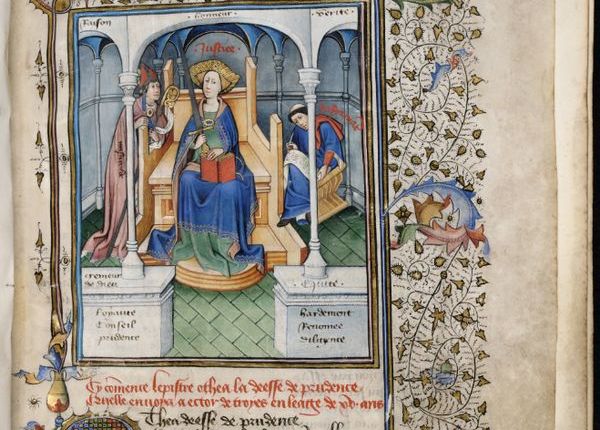 Raison
Honneur
Verite
Justice
Cremeur
de dieu
Loyaute
Conseil
prudence
Equite
hardement
Renomee
diligence
Cy comence lepistre othea la deesse de prudence
Quelle envoya a ector de troyes en leatge de xv ans
Thea deesse de prudence